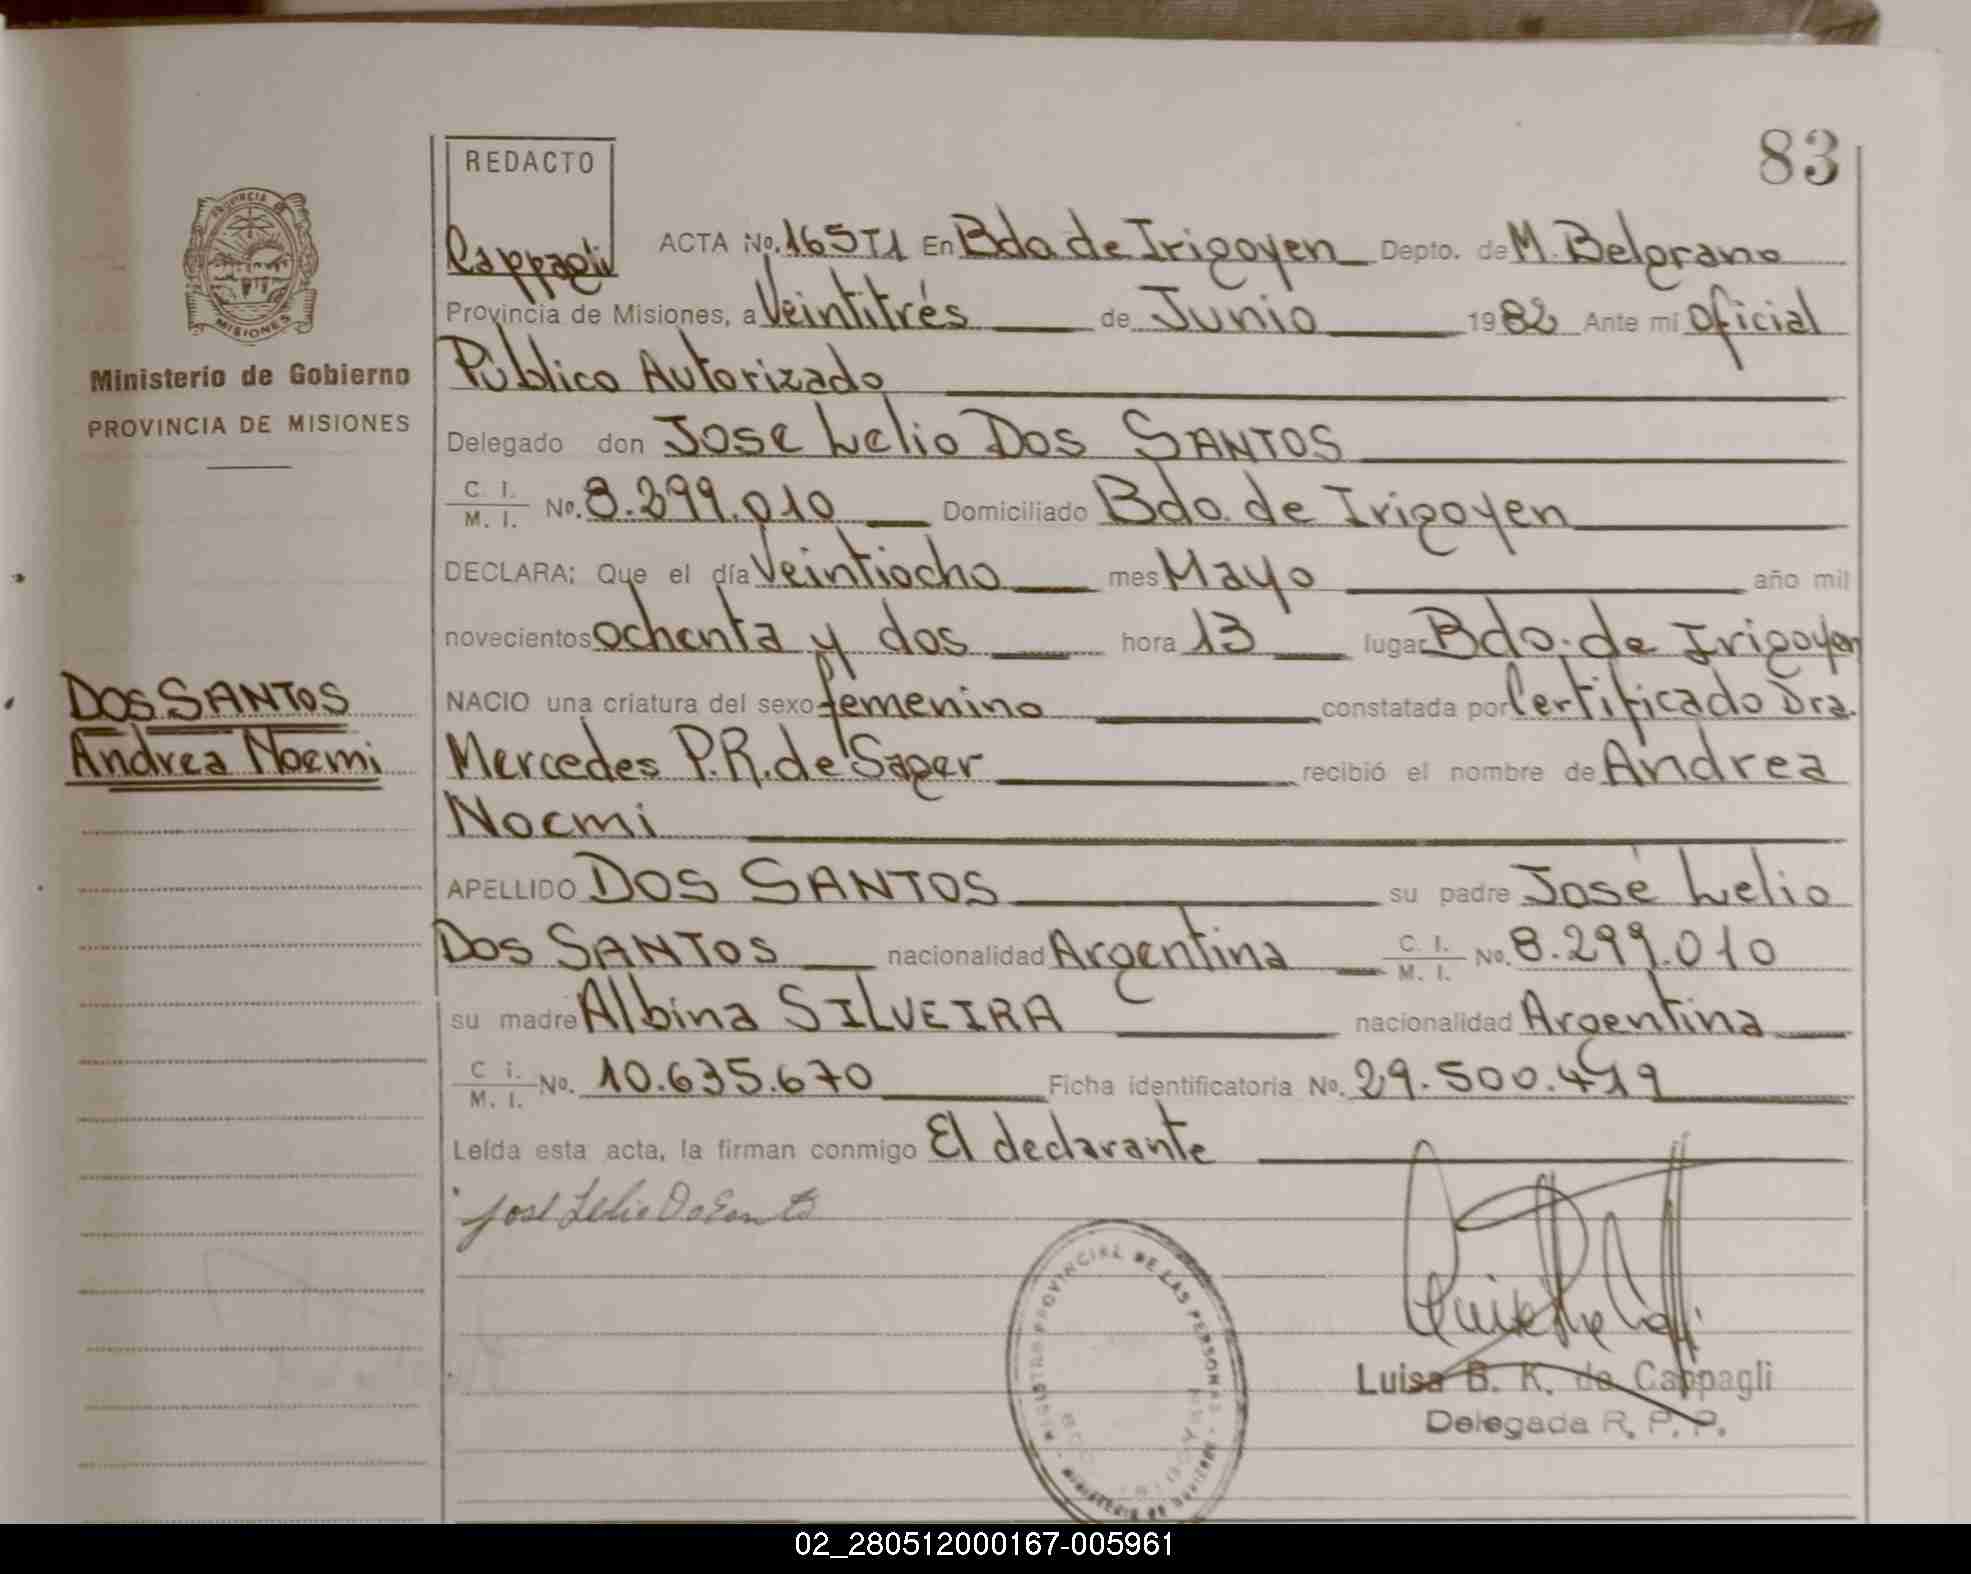 83
REDACTO
Cappagli
ACTA No. 165T1 En Bdo de Irigoyen Depto. de M. Belgrano
Provincia de Misiones, a Veintitrés de Junio 1982 Ante mi Oficial
Público Autorizado
Delegado don Jose Lelio Dos SANTOS
C. I. / M. I. No. 8.299.010 Domiciliado Bdo. de Irigoyen
DECLARA: Que el día Veintiocho mes Mayo año mil
novecientos ochenta y dos hora 13 lugar Bdo. de Irigoyen
NACIO una criatura del sexo femenino constatada por Certificado Dra.
Mercedes P.R. de Sager recibió el nombre de Andrea
Noemi
APELLIDO DOS SANTOS su padre José Lelio
Dos SANTOS nacionalidad Argentina C. I. / M. I. No. 8.299.010
su madre Albina SILVEIRA nacionalidad Argentina
C. i. / M. I. No. 10.635.670 Ficha identificatoria No. 29.500.419
Leída esta acta, la firman conmigo El declarante
José Lelio Dos Santos
Luisa B. K. de Cappagli
Delegada R. P. P.
REGISTRO PROVINCIAL DE LAS PERSONAS
PROVINCIA DE
MISIONES
Ministerio de Gobierno
PROVINCIA DE MISIONES
DOS SANTOS
Andrea Noemi
02_280512000167-005961